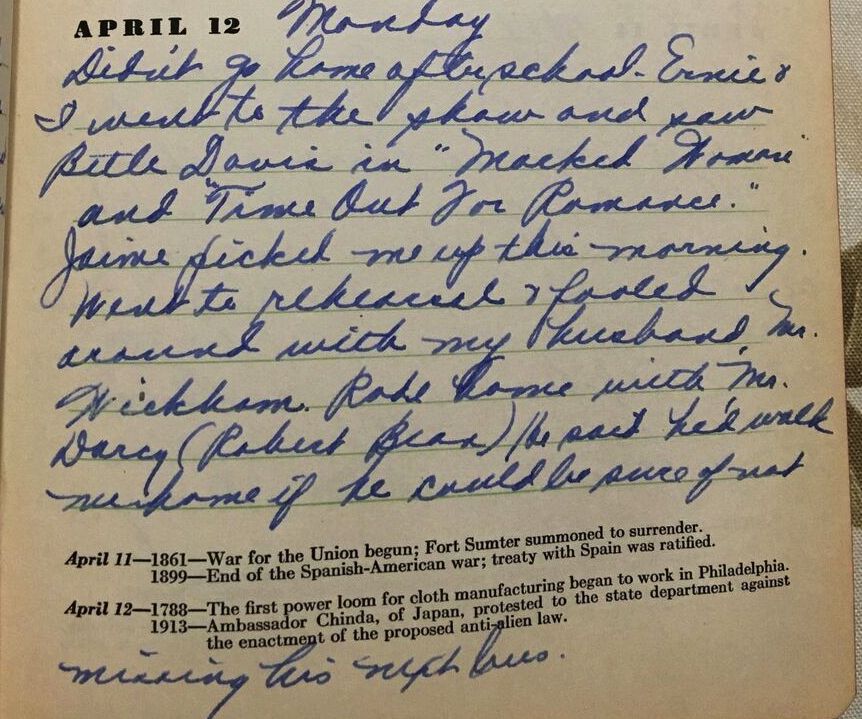 APRIL 12 Monday
Didn't go home after school - Ernie &
I went to the show and saw
Bette Davis in "Marked Woman"
and "Time Out For Romance."
Jaime picked me up this morning.
Went to rehearsal & fooled
around with my husband, Mr.
Wickham. Rode home with Mr.
Darcy (Robert Bean) He said he'd walk
me home if he could be sure of not
April 11—1861—War for the Union begun; Fort Sumter summoned to surrender.
1899—End of the Spanish-American war; treaty with Spain was ratified.
April 12—1788—The first power loom for cloth manufacturing began to work in Philadelphia.
1913—Ambassador Chinda, of Japan, protested to the state department against
the enactment of the proposed anti-alien law.
missing his next bus.